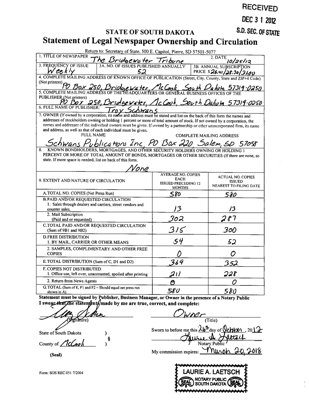 RECEIVED
DEC 31 2012
S.D. SEC. OF STATE
STATE OF SOUTH DAKOTA
Statement of Legal Newspaper Ownership and Circulation
Return to: Secretary of State, 500 E. Capitol, Pierre, SD 57501-5077
1. TITLE OF NEWSPAPER
The Bridgewater Tribune
2. DATE
3. FREQUENCY OF ISSUE
Weekly
3A. NO. OF ISSUES PUBLISHED ANNUALLY
52
3B. ANNUAL SUBSCRIPTION
PRICE
4. COMPLETE MAILING ADDRESS OF KNOWN OFFICE OF PUBLICATION (Street, City, County, State and ZIP+4 Code)
(Not printers)
PO Box 250, Bridgewater, McCook, South Dakota 57319-0250
5. COMPLETE MAILING ADDRESS OF THE HEADQUARTERS OR GENERAL BUSINESS OFFICES OF THE
PUBLISHER (Not printer)
PO Box 250, Bridgewater, McCook, South Dakota 57319-0250
6. FULL NAME OF PUBLISHER:
Troy Schwans
7. OWNER (If owned by a corporation, its name and address must be stated and also immediately thereunder the names and
addresses of stockholders owning or holding 1 percent or more of total amount of stock. If not owned by a corporation, the
names and addresses of the individual owners must be given. If owned by a partnership or other unincorporated firm, its name
and address, as well as that of each individual must be given.
FULL NAME
COMPLETE MAILING ADDRESS
Schwans Publications Inc, PO Box 220 Salem, SD 57058
8. KNOWN BONDHOLDERS, MORTGAGEES, AND OTHER SECURITY HOLDERS OWNING OR HOLDING 1
PERCENT OR MORE OF TOTAL AMOUNT OF BONDS, MORTGAGES OR OTHER SECURITIES (if there are none, so
state. If more space is needed, list on back of this form.
None
9. EXTENT AND NATURE OF CIRCULATION
AVERAGE NO. COPIES
EACH
ISSUED PRECEDING 12
MONTHS
ACTUAL NO. COPIES
ISSUED
NEAREST TO FILING DATE
A. TOTAL NO. COPIES (Net Press Run)
580
580
B. PAID AND/OR REQUESTED CIRCULATION
1. Sales through dealers and carriers, street vendors and
counter sales.
13
13
2. Mail Subscription
(Paid and or requested)
302
287
C. TOTAL PAID AND/OR REQUESTED CIRCULATION
(Sum of 9B1 and 9B2)
315
300
D. FREE DISTRIBUTION
1. BY MAIL, CARRIER OR OTHER MEANS
54
52
2. SAMPLES, COMPLIMENTARY AND OTHER FREE
COPIES
0
0
E. TOTAL DISTRIBUTION (Sum of C, D1 and D2)
369
352
F. COPIES NOT DISTRIBUTED
1. Office use, left over, unaccounted, spoiled after printing
211
228
2. Return from News Agents
0
0
G. TOTAL (Sum of E, F1 and F2 - Should equal net press run
shown in A)
580
580
Statement must be signed by Publisher, Business Manager, or Owner in the presence of a Notary Public
I swear that the statements made by me are true, correct, and complete:
Owner
(Signature)
(Title)
State of South Dakota )
§
County of McCook )
(Seal)
Sworn to before me this
day of October, 2012
Laurie A. Laetsch
Notary Public
My commission expires: March 20, 2018
Form: SOS REC 051 7/2004
LAURIE A. LAETSCH
SEAL NOTARY PUBLIC SEAL
SOUTH DAKOTA